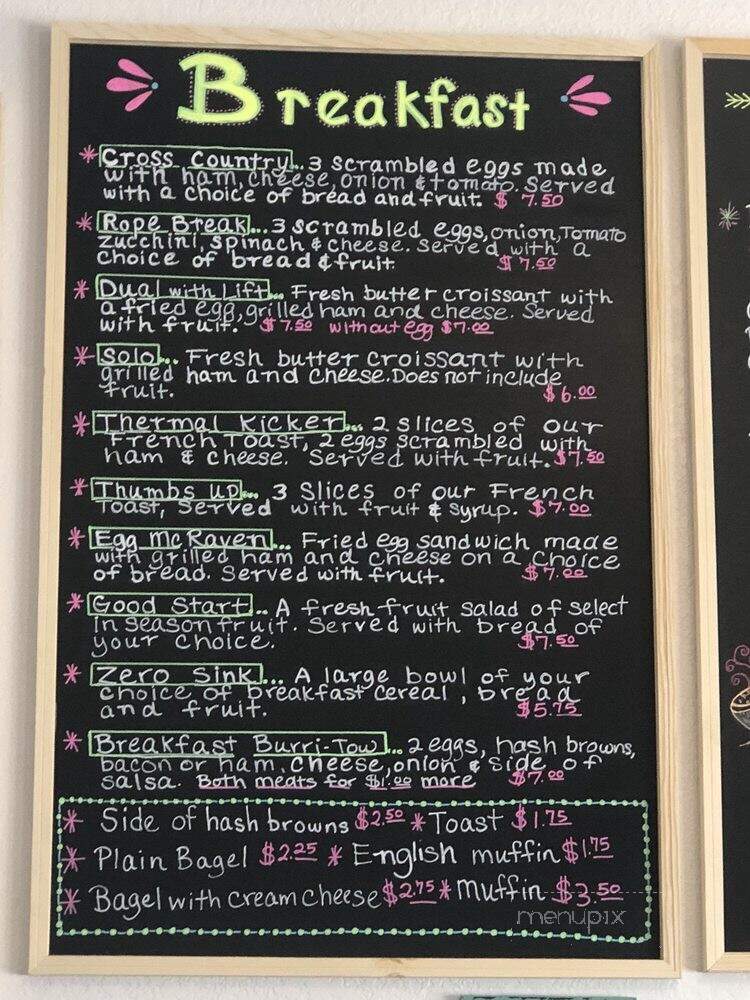 Breakfast
* Cross Country... 3 scrambled eggs made
with ham, cheese, onion & tomato. Served
with a choice of bread and fruit. $ 7.50
* Rope Break... 3 scrambled eggs, onion, Tomato
zucchini, spinach & cheese. Served with a
choice of bread & fruit. $ 7.50
* Dual with Lift... Fresh butter croissant with
a fried egg, grilled ham and cheese. Served
with fruit. $ 7.50 without egg $7.00
* Solo... Fresh butter croissant with
grilled ham and cheese. Does not include
fruit. $6.00
* Thermal Kicker... 2 slices of our
French Toast, 2 eggs scrambled with
ham & cheese. Served with fruit. $7.50
* Thumbs up... 3 Slices of our French
Toast, Served with fruit & syrup. $7.00
* Egg McRaven... Fried egg sandwich made
with grilled ham and cheese on a choice
of bread. Served with fruit. $7.00
* Good Start... A fresh fruit salad of select
in season fruit. Served with bread of
your choice. $7.50
* Zero Sink... A large bowl of your
choice of breakfast cereal, bread
and fruit. $5.75
* Breakfast Burri-Tow... 2 eggs, hash browns,
bacon or ham, cheese, onion & side of
salsa. Both meats for $1.00 more $7.00
* Side of hash browns $2.50 * Toast $1.75
* Plain Bagel $2.25 * English muffin $1.75
* Bagel with cream cheese $2.75 * muffin $3.50
menupix